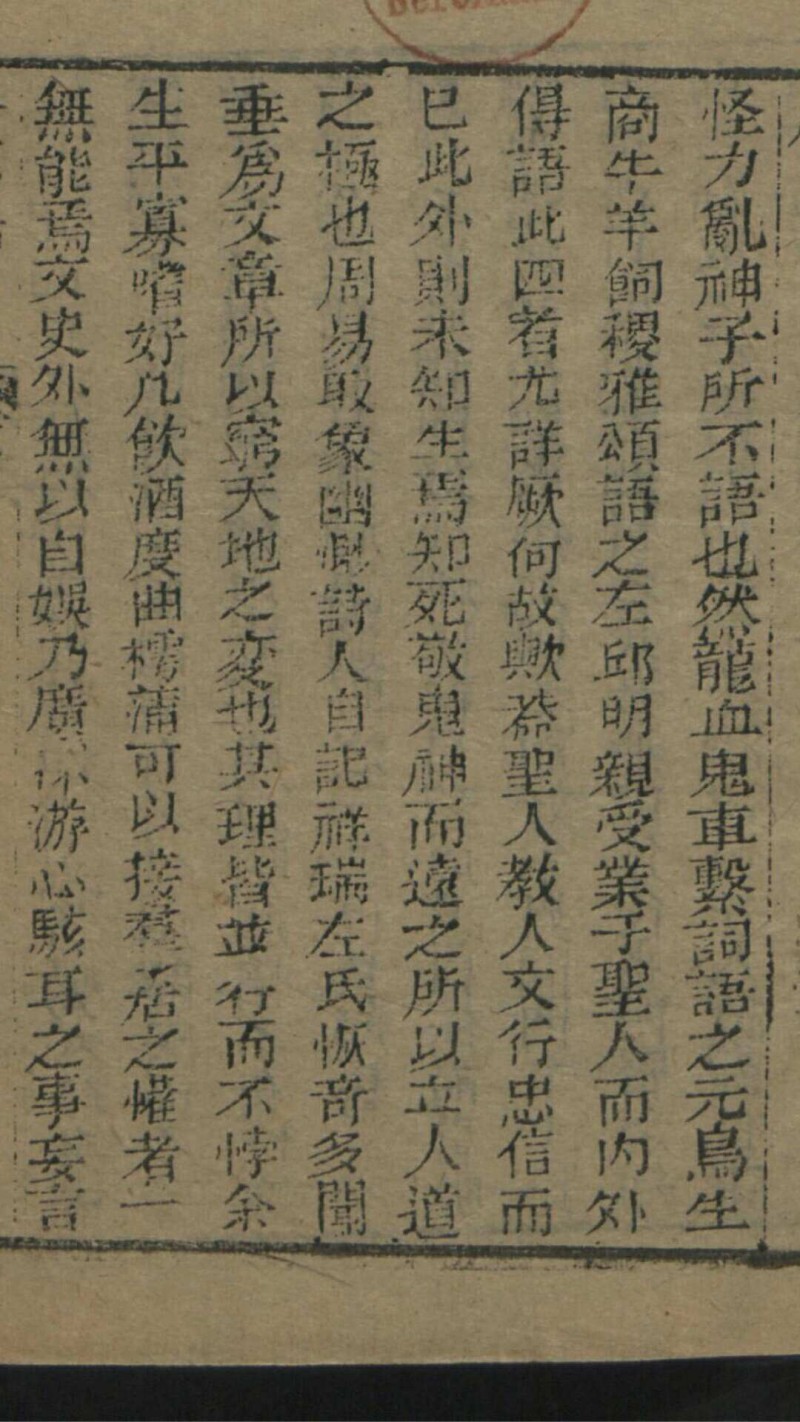 怪力亂神子所不語也然龍血鬼車繫詞語之元鳥生
商牛羊飼稷雅頌語之左邱明親受業于聖人而內外
傳語此四者尤詳厥何故歟蓋聖人教人文行忠信而
已此外則未知生焉知死敬鬼神而遠之所以立人道
之極也周易取象幽𢠢詩人自記祥瑞左氏恢奇多聞
垂爲文章所以窮天地之変也其理皆並行而不悖余
生平寡嗜好凡飲酒度曲樗蒲可以接羣居之懽者一
無能焉文史外無以自娛乃廣采游心駭耳之事妄言